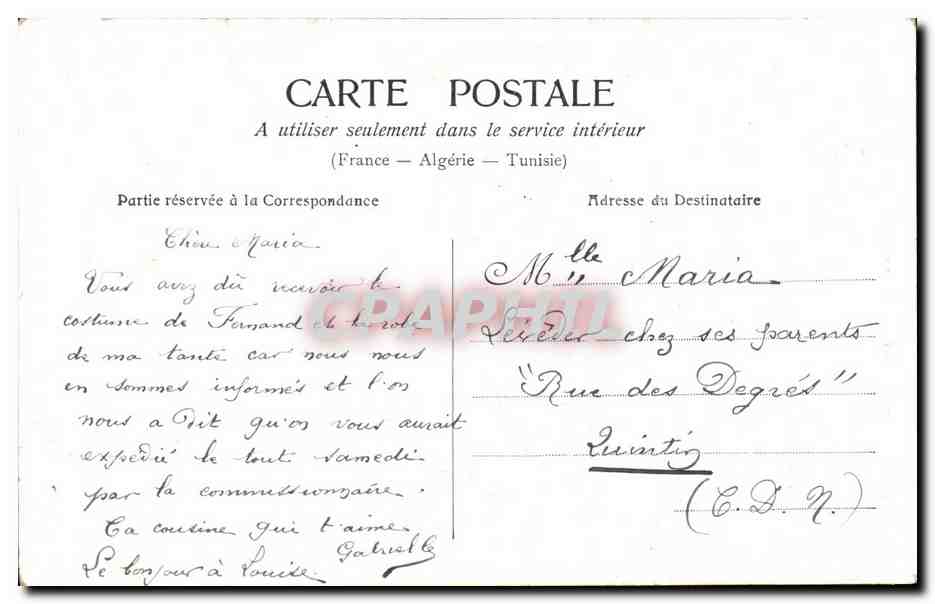 CARTE POSTALE
A utiliser seulement dans le service intérieur
(France — Algérie — Tunisie)
Partie réservée à la Correspondance
Chère Maria
Vous avez dû recevoir le
costume de Fernand et la robe
de ma tante car nous nous
en sommes informés et l'on
nous a dit qu'on vous aurait
expédié le tout samedi
par la commissionnaire.
Ta cousine qui t'aime
Gabrielle
Le bonjour à Louise.
Adresse du Destinataire
Mlle Maria
chez ses parents
"Rue des Degrés"
Quintin
(C. D. N.)
CPAPHIL